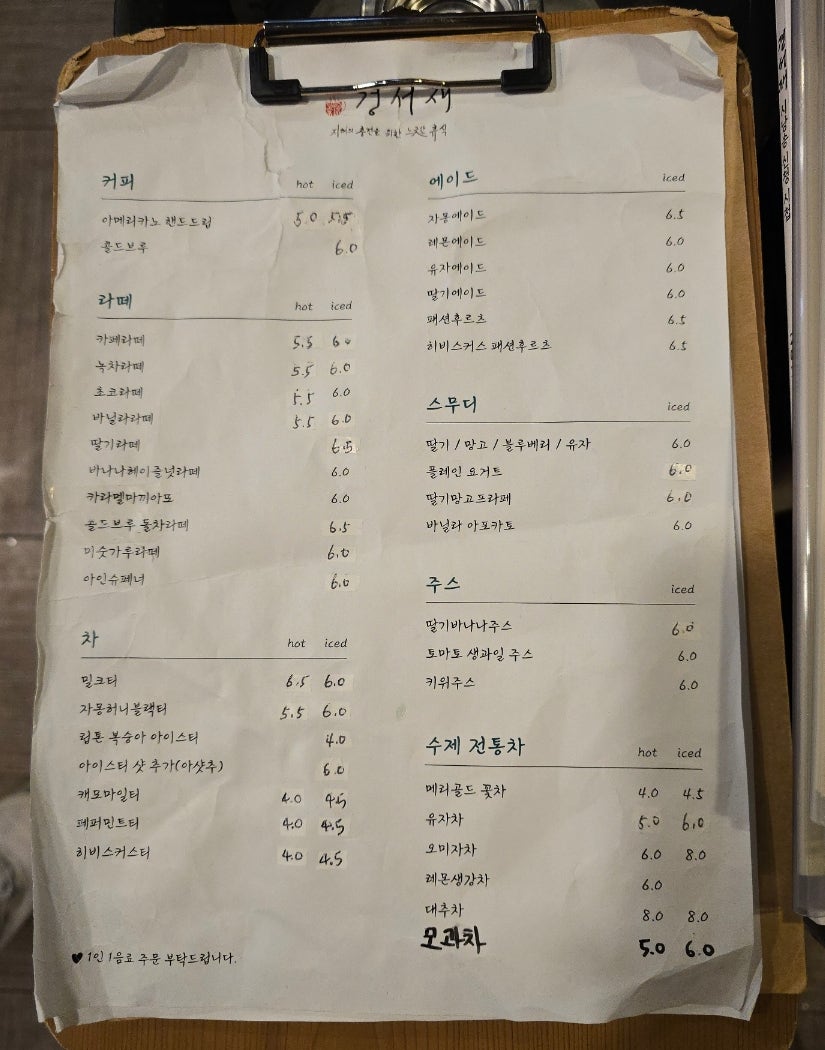 경서재
지혜의 충전을 위한 느긋한 휴식
커피 hot iced
아메리카노 핸드드립 5.0 5.5
콜드브루 6.0
라떼 hot iced
카페라떼 5.5 6.0
녹차라떼 5.5 6.0
초코라떼 5.5 6.0
바닐라라떼 5.5 6.0
딸기라떼 6.5
바나나헤이즐넛라떼 6.0
카라멜마끼아또 6.0
콜드브루 돌차라떼 6.5
미숫가루라떼 6.0
아인슈페너 6.0
차 hot iced
밀크티 6.5 6.0
자몽허니블랙티 5.5 6.0
립톤 복숭아 아이스티 4.0
아이스티 샷 추가(아샷추) 6.0
캐모마일티 4.0 4.5
페퍼민트티 4.0 4.5
히비스커스티 4.0 4.5
♥ 1인 1음료 주문 부탁드립니다.
에이드 iced
자몽에이드 6.5
레몬에이드 6.0
유자에이드 6.0
딸기에이드 6.0
패션후르츠 6.5
히비스커스 패션후르츠 6.5
스무디 iced
딸기 / 망고 / 블루베리 / 유자 6.0
플레인 요거트 6.0
딸기망고프라페 6.0
바닐라 아포카토 6.0
주스 iced
딸기바나나주스 6.0
토마토 생과일 주스 6.0
키위주스 6.0
수제 전통차 hot iced
메리골드 꽃차 4.0 4.5
유자차 5.0 6.0
오미자차 6.0 8.0
레몬생강차 6.0
대추차 8.0 8.0
모과차 5.0 6.0